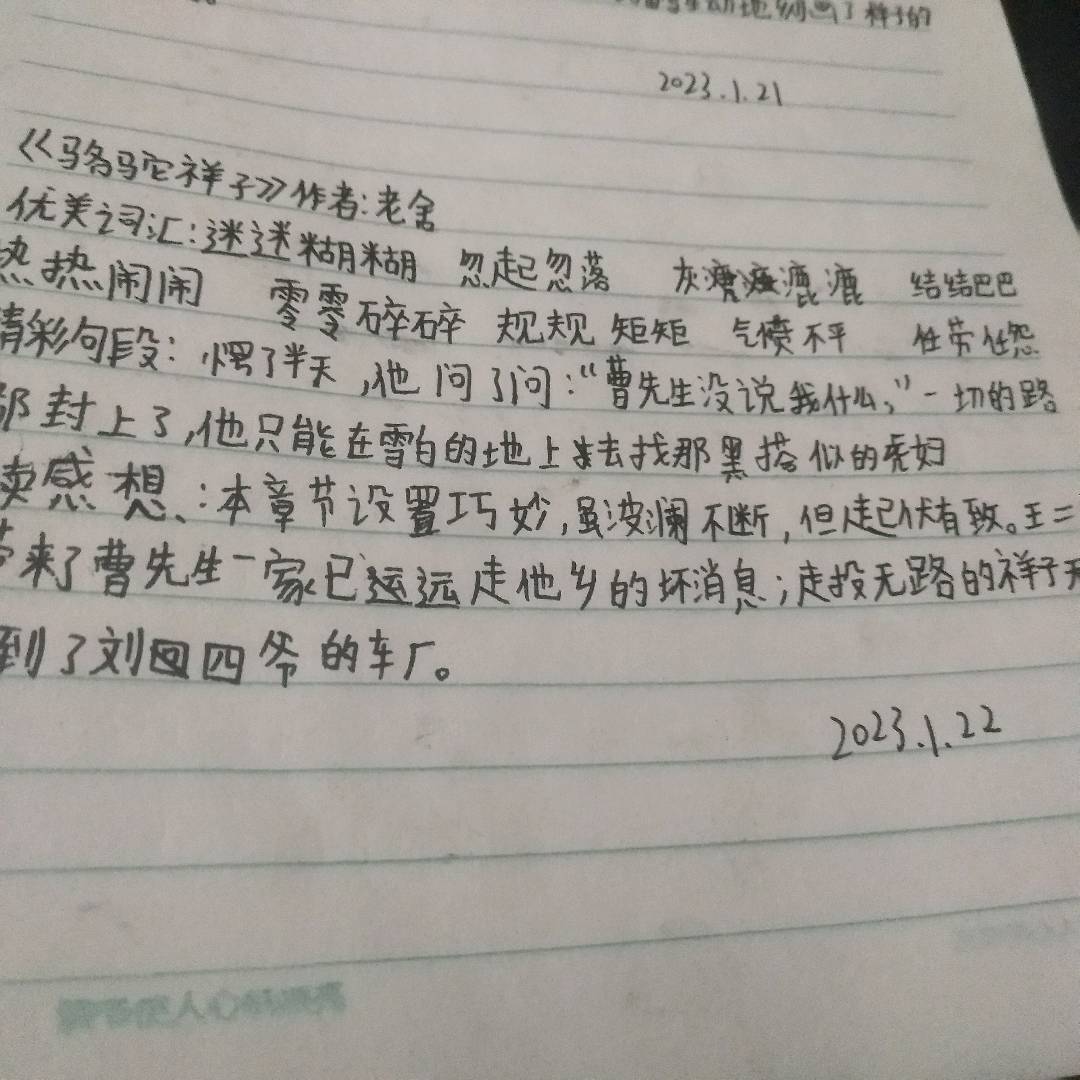 样子的
2023.1.21
《骆驼祥子》作者:老舍
优美词汇:迷迷糊糊 忽起忽落 灰漉漉 结结巴巴
热热闹闹 零零碎碎 规规矩矩 气愤不平 任劳任怨
精彩句段:愣了半天,他问了问:“曹先生没说我什么,”一切的路
都封上了,他只能在雪白的地上去找那黑搭似的虎妞
读感想:本章节设置巧妙,虽波澜不断,但起伏有致。王二
带来了曹先生一家已远走他乡的坏消息;走投无路的祥子
到了刘四爷的车厂。
2023.1.22